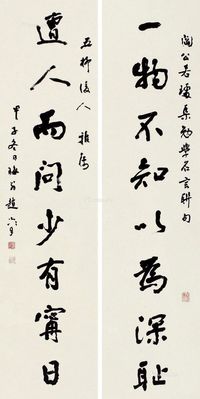 閻公若璩集勉學名言聯句
一物不知以為深恥
五柳後人 雅屬
遭人而問少有寧日
甲子冬日梅翁趙